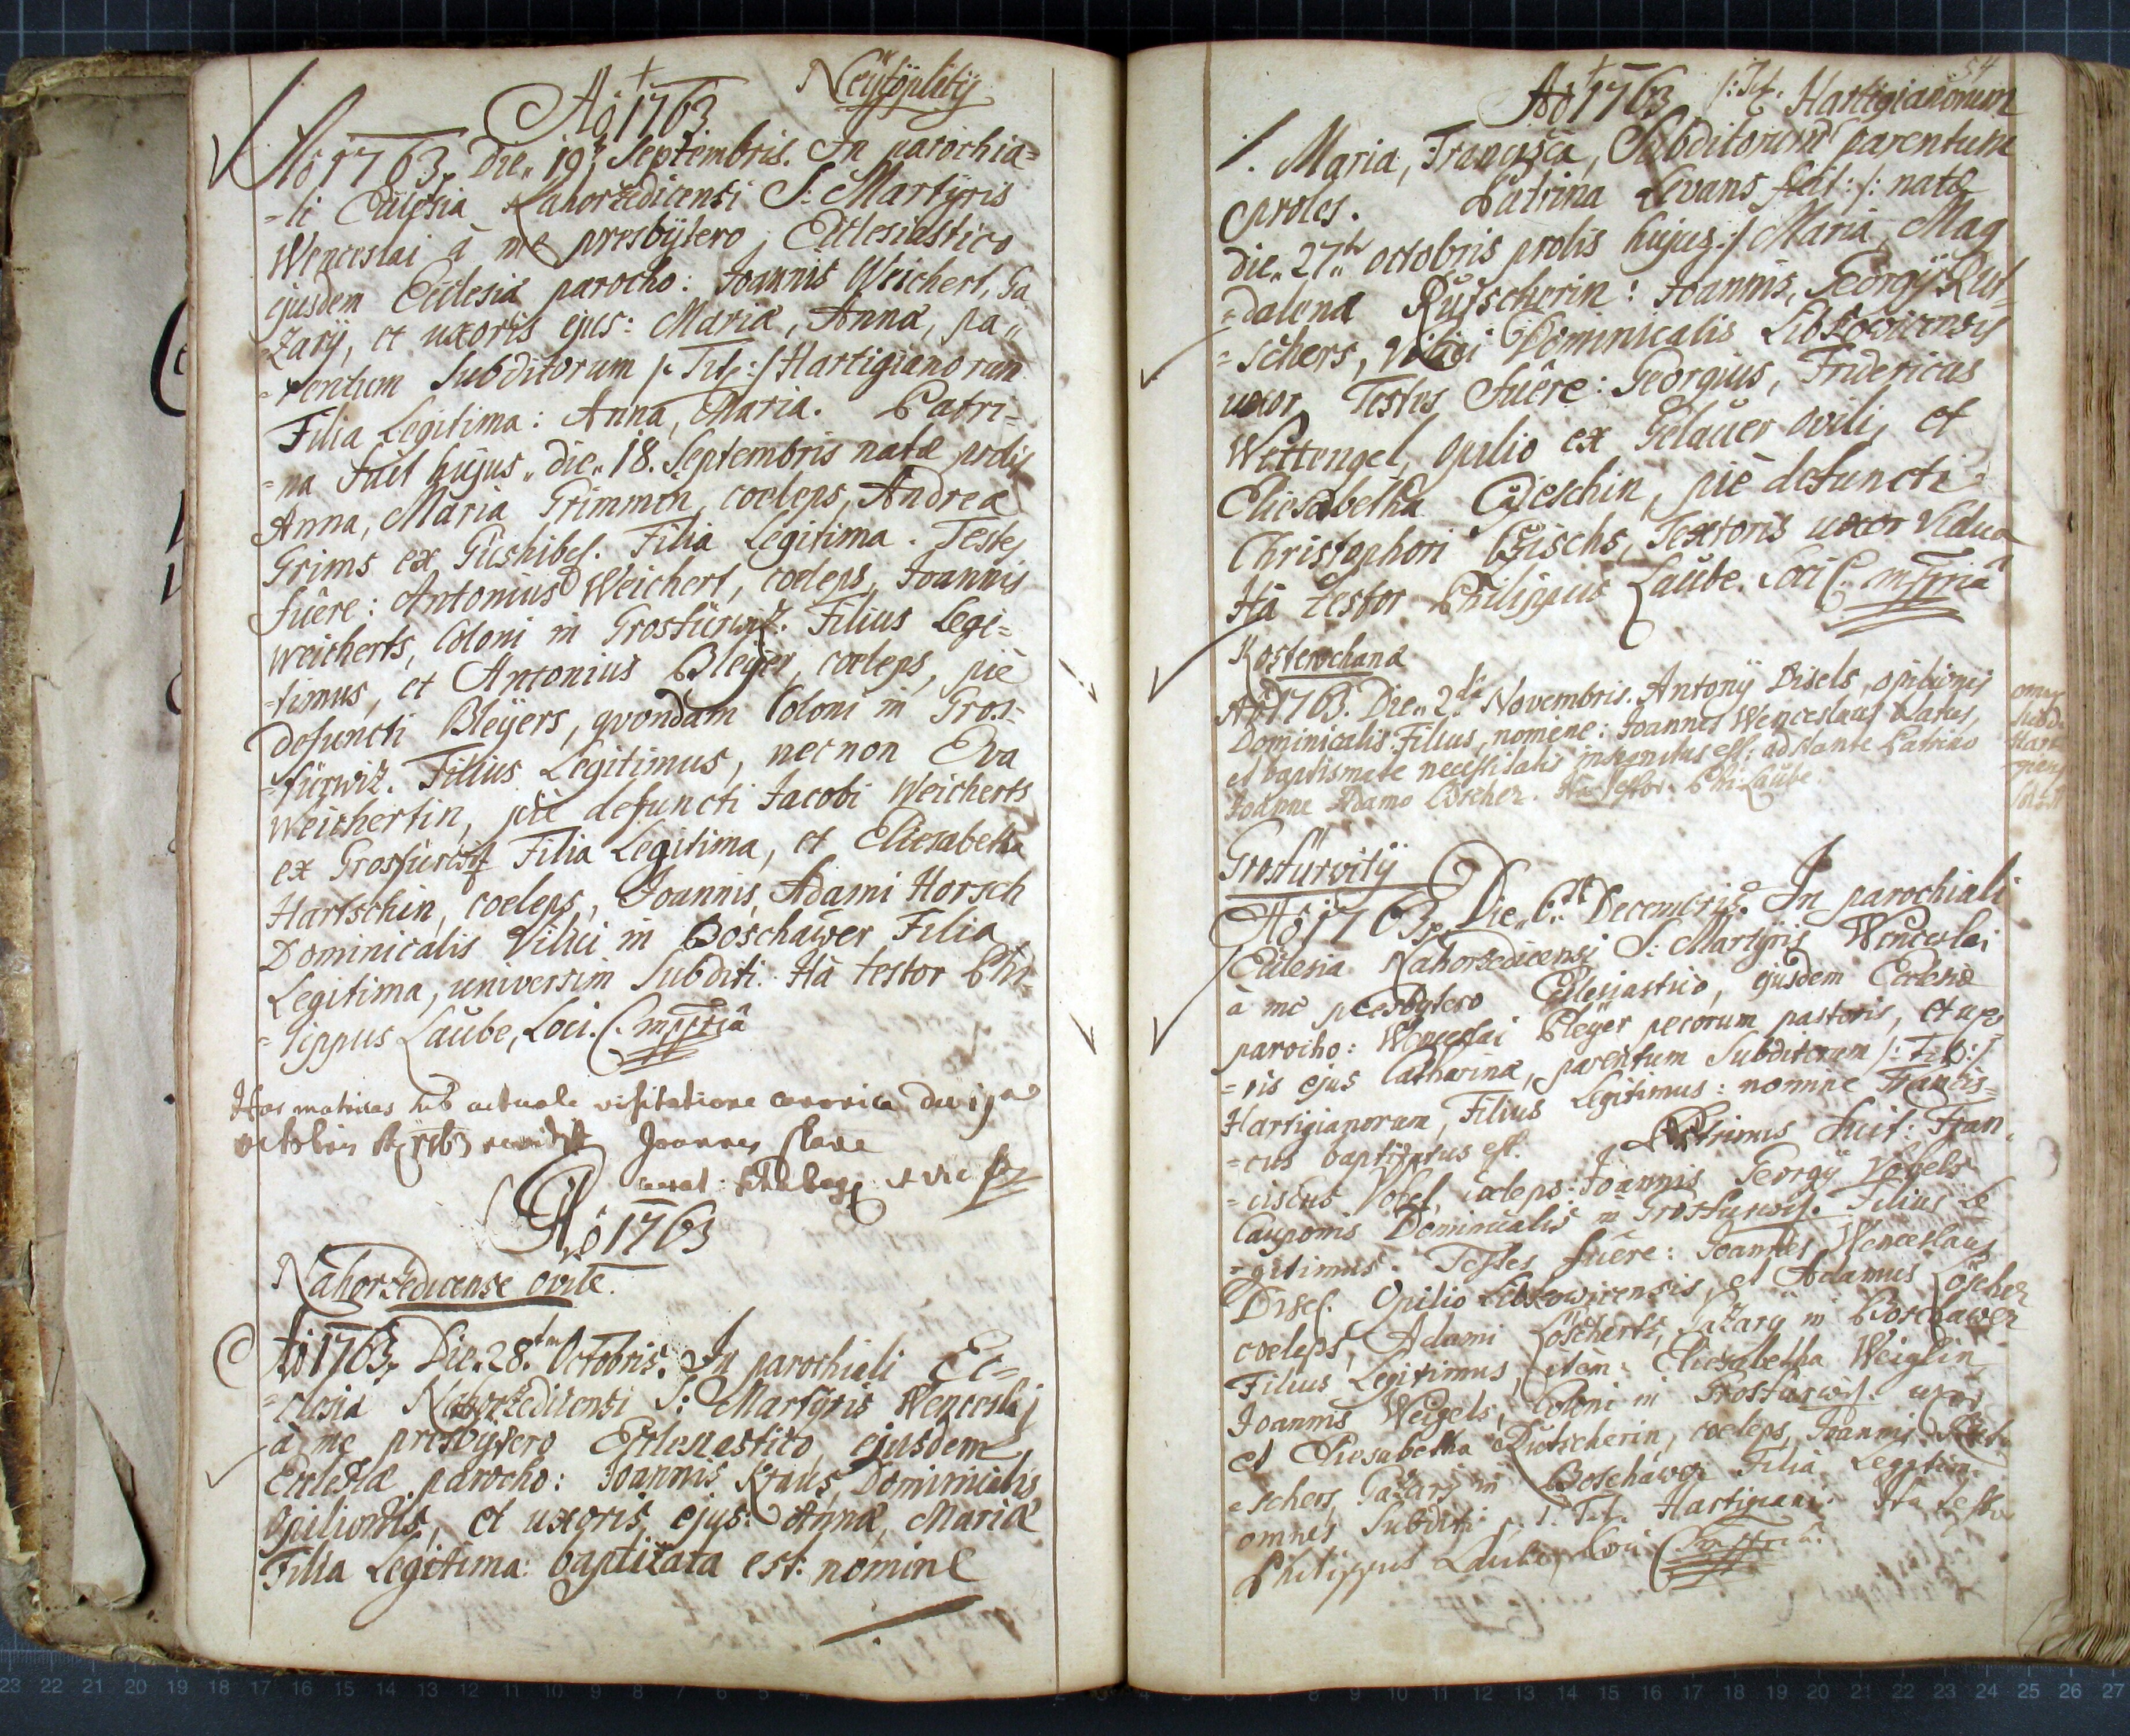 Ao 1763
Neÿtöplitÿ
Ao 1763. Die 19 Septembris. In parochia=
=li Ecclesia Nahoržedicensi S: Martÿris
Wenceslai à me presbÿtero Ecclesiastico
ejusdem Ecclesiæ parocho: Joannis Weichert, Ga
zarÿ, et uxoris ejus: Mariæ, Annæ, pa„
=rentum Subditorum /: Tit: / Hartigianorum
Filia Legitima: Anna, Maria. Patri=
=na fuit hujus „die„ 18. Septembris natæ prolis
Anna, Maria Grimmin, coelebs, Andreæ
Grims ex Filia Legitima. Testes
fuêre: Antonius Weichert, coelebs, Joannis
Weicherts, Coloni in Grosfürwiz. Filius Legi=
=timus, et Antonius Bleÿer, coelebs, piè
defuncti Bleÿers, qvondam Coloni in Gros=
=fürwiz. Filius Legitimus, necnon Eva
Weichertin, piè defuncti Jacobi Weicherts
ex Grosfürwiz Filia Legitima, et Eliesabetha
Hartschin, coelebs, Joannis, Adami Horsch
Dominicalis Villici in Boschawer Filia
Legitima, universim Subditi. Ità testor Phi-
=lippus Laube, Loci C. mppria
Has matrices sub actuale visitatione canonica die
octobris Ao 1763 Joannes
et
Ao 1763
Nahoržedicense ovile.
Ao 1763. Die 28 Octobris. In parochiali Ec=
=clesia Nahoržedicensi S: Martÿris Wenceslai
à me presbÿtero Ecclesiastico, ejusdem
Ecclesiæ parocho: Joannis Kraus, Dominicalis
Opilionis, et uxoris ejus: Annæ, Mariæ
Filia Legitima: baptizata est: nomine
54
Ao 1763
/: Tit. Hartigianorum
Maria, Francisca, Subditorum parentum
proles. Patrina Levans fuit: /: natæ
die„ 27 octobris prolis hujus: / Maria, Mag
=dalena Rutscherin: Joannis, Georgÿ Rut=
=schers, Villici Dominicalis Libkowicensis
uxor. Testes fuêre: Georgius, Fridericus
Wettengel, opilio ex Gelauer ovili, et
Eliesabetha, piè defuncti
Christophori, Textoris uxor Vidua
Ità testor Philippus Laube. Loci C. mppria
Kosterochana
Ao 1763. Die„ 2 Novembris. Antonÿ Disels, opilionis
Dominicalis Filius, nomine: Joannes Wenceslaus natus,
et baptismate necessitatis insignitus est; adstante Patrino
Joanne Adamo Löscher. Ita testor Phi: Laube.
omnes
Subdi
Hart
Grosfurvitÿ
Ao 1763. Die„ 6 Decembris. In parochiali
Ecclesia Nahoržedicensi S: Martÿris Wenceslai
à me presbÿtero Ecclesiastico, ejusdem Ecclesiæ
parocho: Wenceslai Bleÿer pecorum pastoris, et uxo
=ris ejus Catharinæ, parentum Subditorum /: Tit: /
Hartigianorum, Filius Legitimus: nomine Francis=
=cus baptizatus est. Patrinus fuit: Fran=
=ciscus Vogel, coelebs: Joannis Georgÿ Vogels
Cauponis Dominicalis in Grosfurwiz. Filius Le
=gitimus. Testes fuêre: Joannes, Wenceslaus
Disel. Opilio Libkowicensis, et Adamus Löscher
coelebs, Adami Löscherts, Gazarÿ in Boschawer
Filius Legitimus, item: Eliesabetha Weiglin
Joannis Weigels, Coloni in Grosfurwiz. uxor
et Eliesabetha Rutscherin, coelebs, Joannis Rut=
=schers Gazarÿ in Boschawer Filia Legitim.
omnes Subditi /: Tit. Hartigiani. Ità testor
Philippus Laube, Loci C. mppria